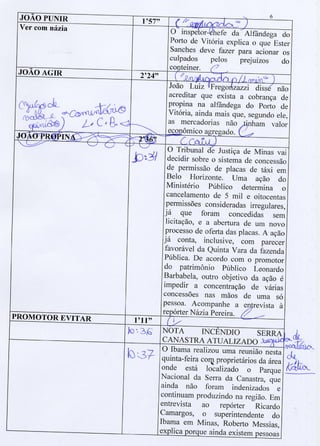 6
JOÃO PUNIR
1'57"
Ver com názia
O inspetor-chefe da Alfândega do
Porto de Vitória explica o que Ester
Sanches deve fazer para acionar os
culpados pelos prejuízos do
conteiner.
JOÃO AGIR
2'24"
João Luiz Fregonazzi disse não
acreditar que exista a cobrança de
propina na alfândega do Porto de
Vitória, ainda mais que, segundo ele,
as mercadorias não tinham valor
econômico agregado.
JOÃO PROPINA
O Tribunal de Justiça de Minas vai
decidir sobre o sistema de concessão
de permissão de placas de táxi em
Belo Horizonte. Uma ação do
Ministério Público determina o
cancelamento de 5 mil e oitocentas
permissões consideradas irregulares,
já que foram concedidas sem
licitação, e a abertura de um novo
processo de oferta das placas. A ação
já conta, inclusive, com parecer
favorável da Quinta Vara da fazenda
Pública. De acordo com o promotor
do patrimônio Público Leonardo
Barbabela, outro objetivo da ação é
impedir a concentração de várias
concessões nas mãos de uma só
pessoa. Acompanhe a entrevista à
repórter Názia Pereira.
PROMOTOR EVITAR
1'11"
10:36
NOTA INCÊNDIO SERRA
CANASTRA ATUALIZADO
10:37
O Ibama realizou uma reunião nesta
quinta-feira com proprietários da área
onde está localizado o Parque
Nacional da Serra da Canastra, que
ainda não foram indenizados e
continuam produzindo na região. Em
entrevista ao repórter Ricardo
Camargos, o superintendente do
Ibama em Minas, Roberto Messias,
explica porque ainda existem pessoas